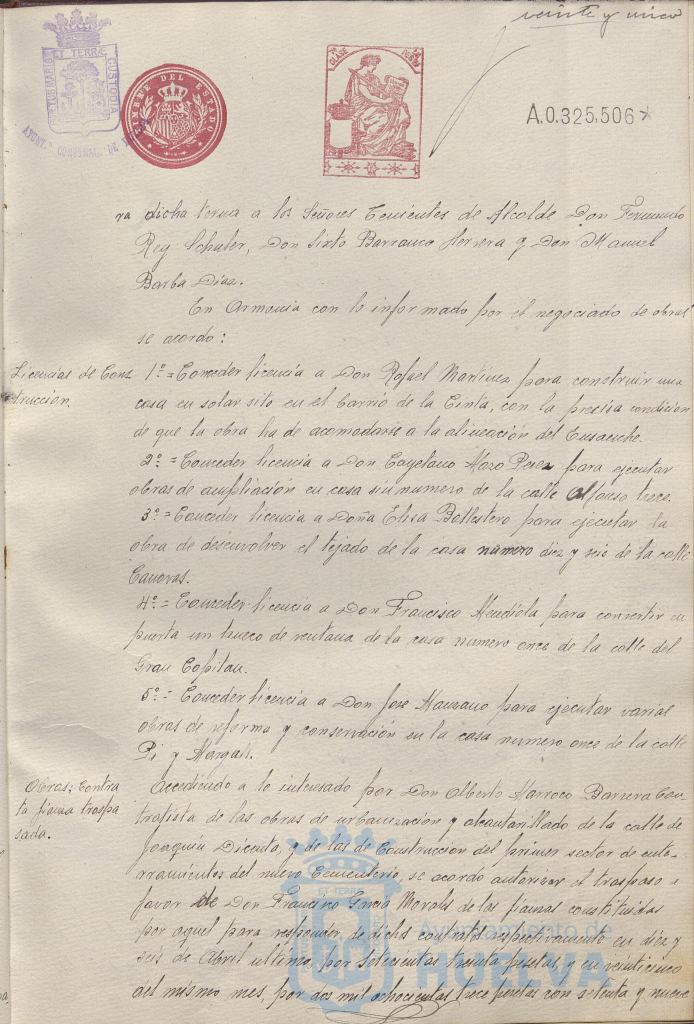 veinte y cinco
PORTUS MARIS ET TERRÆ CUSTODIA
AYUNT.º CONSTNAL. DE HUELVA
TIMBRE DEL ESTADO
CLASE
A.0.325.506
ra dicha terna a los Señores Tenientes de Alcalde Don Fernando
Rey Schuler, Don Sixto Barranco Herrera y Don Manuel
Barba Diaz.
En Armonia con lo informado por el negociado de obras
se acordo:
Licencias de Cons
trucción.
1º = Conceder licencia a Don Rafael Martinez para construir una
casa en solar sito en el barrio de la Cinta, con la precisa condición
de que la obra ha de acomodarse a la alineación del Ensanche.
2º = Conceder licencia a Don Cayetano Mozo Perez para ejecutar
obras de ampliación en casa sin numero de la calle Alfonso trece.
3º = Conceder licencia a Doña Elisa Ballestero para ejecutar la
obra de desenvolver el tejado de la casa numero diez y seis de la calle
Canovas.
4º = Conceder licencia a Don Francisco Mendiola para convertir en
puerta un hueco de ventana de la casa numero once de la calle del
Gran Capitan.
5º = Conceder licencia a Don Jose Manzano para ejecutar varias
obras de reforma y conservación en la casa numero once de la calle
Pi y Margall.
Obras: Contra
ta fianza traspa
sada.
Accediendo a lo interesado por Don Alberto Marroco Barrera Con
tratista de las obras de urbanización y alcantarillado de la calle de
Joaquin Dicenta, y de las de Construccion del primer sector de ente-
rramientos del nuevo Cementerio, se acordo autorizar el traspaso a
favor de Don Francisco Garcia Morales de las fianzas constituidas
por aquel para responder de dichos contratos respectivamente en diez y
seis de Abril ultimo por setecientas treinta pesetas, y en veinticinco
del mismo mes, por dos mil ochocientas trece pesetas con setenta y nueve
Ayuntamiento de
HUELVA